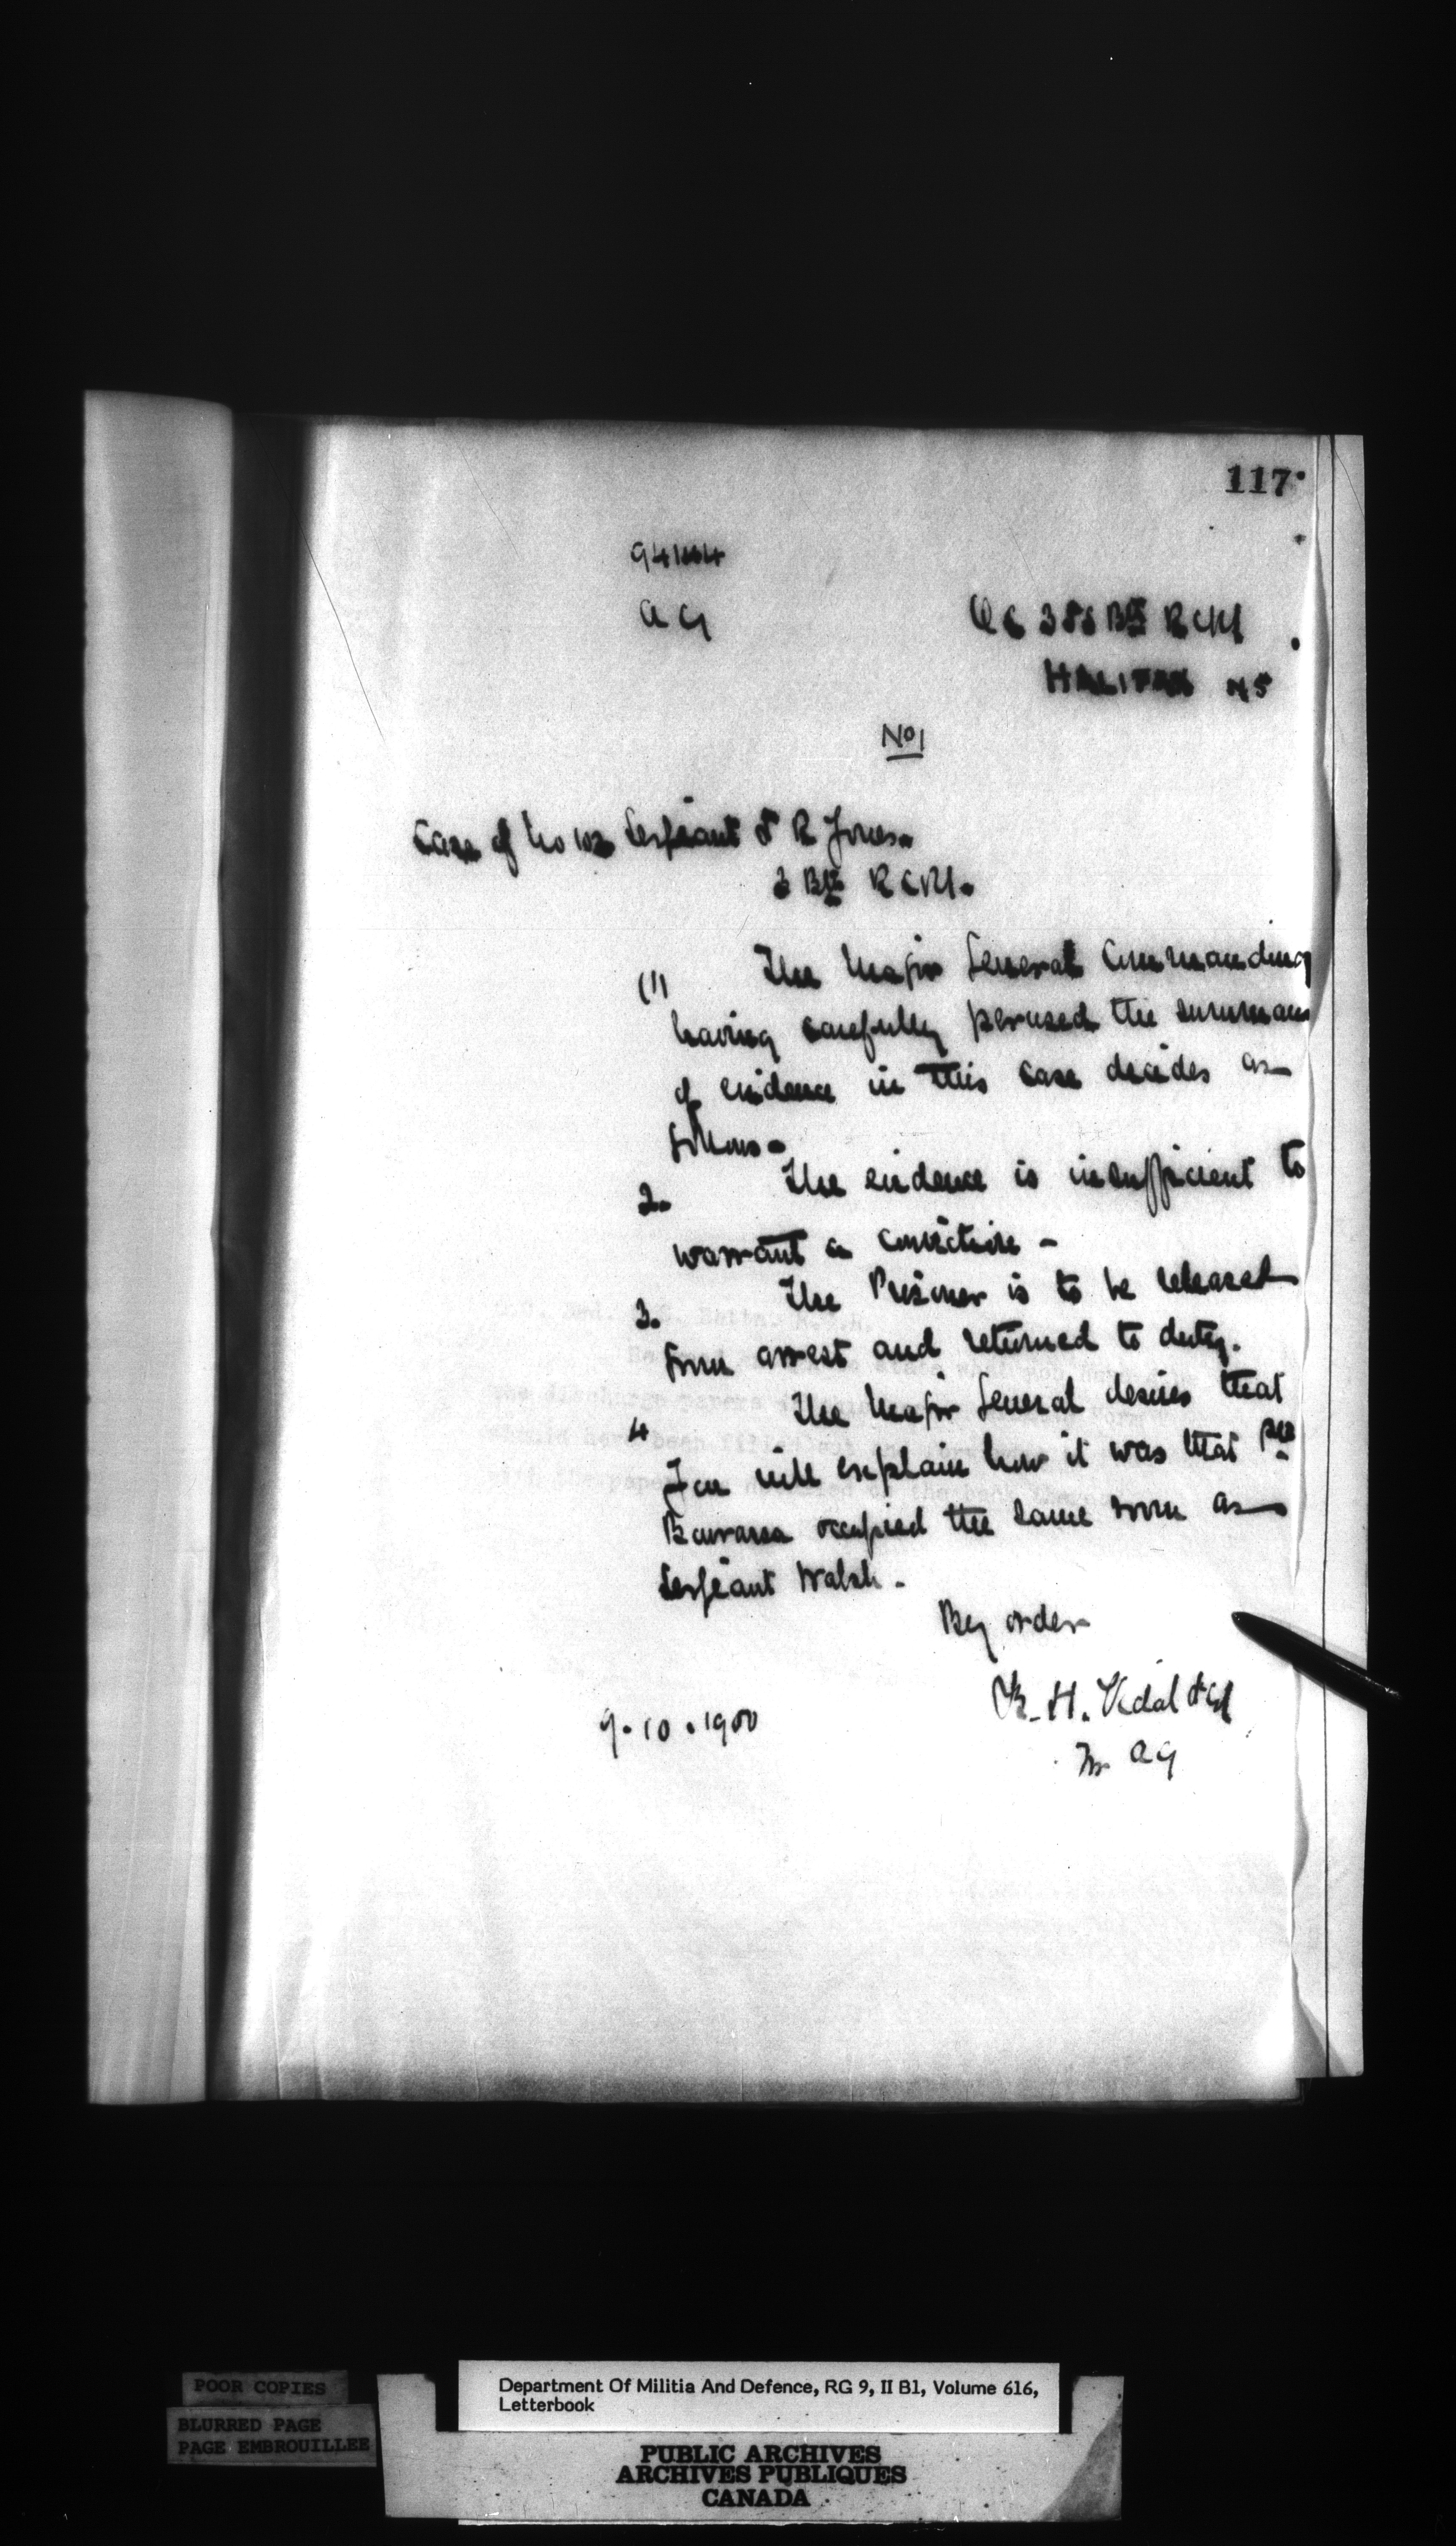 117
A G
HALIFAX NS
No 1
Case of No Sergeant R Jones
3 Btn R C RI.
(1) The Major General Commanding
having carefully perused the summary
of evidence in this case decides as
follows-
2. The evidence is insufficient to
warrant a conviction -
3. The Prisoner is to be released
from arrest and returned to duty.
4 The Major General desires that
you will explain how it was that Pte
occupied the same room as
Sergeant Walsh.
By order
B. H. Vidal
AG
9.10.1900
POOR COPIES
BLURRED PAGE
PAGE EMBROUILLEE
Department Of Militia And Defence, RG 9, II B1, Volume 616,
Letterbook
PUBLIC ARCHIVES
ARCHIVES PUBLIQUES
CANADA